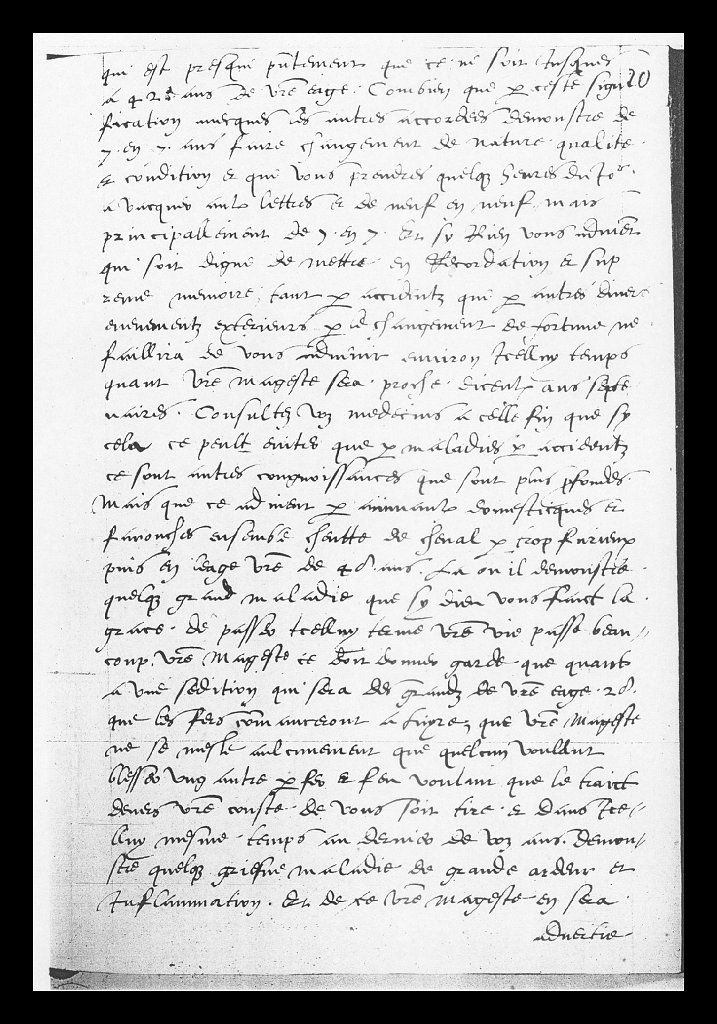 qui est presque pntement que ce ne soit Jusques
a 42 ans de vre eage. Combien que p ceste signi 20
fication avecques les autres accordees demonstre de
7. en 7. ans faire changement de nature qualite
et condition et que vous prendres quelq heures du Jor.
a vacquer aulx lettres et de neuf en neuf mais
principallement de 7. en 7. Et sy Rien vous advient
qui soit digne de mettre en Recordation et sup
reme memoire, tant p accidentz que p autres divers
evenementz exterieurs p le changement de fortune ne
faillira de vous advenir environ Icelluy temps
quant vre mageste sera proche ans septe
naires. Consultez voz medecins a celle fin que sy
cela ce peult eviter que p maladies p accidentz
ce sont autres congnoissances que sont plus pfondes
Mais que ce advient p animaulx domesticques et
farouches ensemble cheutte de cheval p trop furieux
puis en leage vre de 48. ans. La ou il demonstre
quelq grand maladie que sy dieu vous faict la
grace de passer Icelluy terme vre vie passe beau
coup. vre Mageste ce doit donner garde que quant
a une sedition qui sera des grandz de vre eage 28.
que les fers commanceront a fuyre, que vre Mageste
ne se mesle aulcunement que quelcun voullant
blesser ung autre p fer et feu voulant que le traict
devers vre couste de vous soit tire et dans Ice
lluy mesme temps au dernier de voz ans. demon
stre quelq griefve maladie de grande ardeur et
Inflammation. Et de ce vre Mageste en sera
advertie.